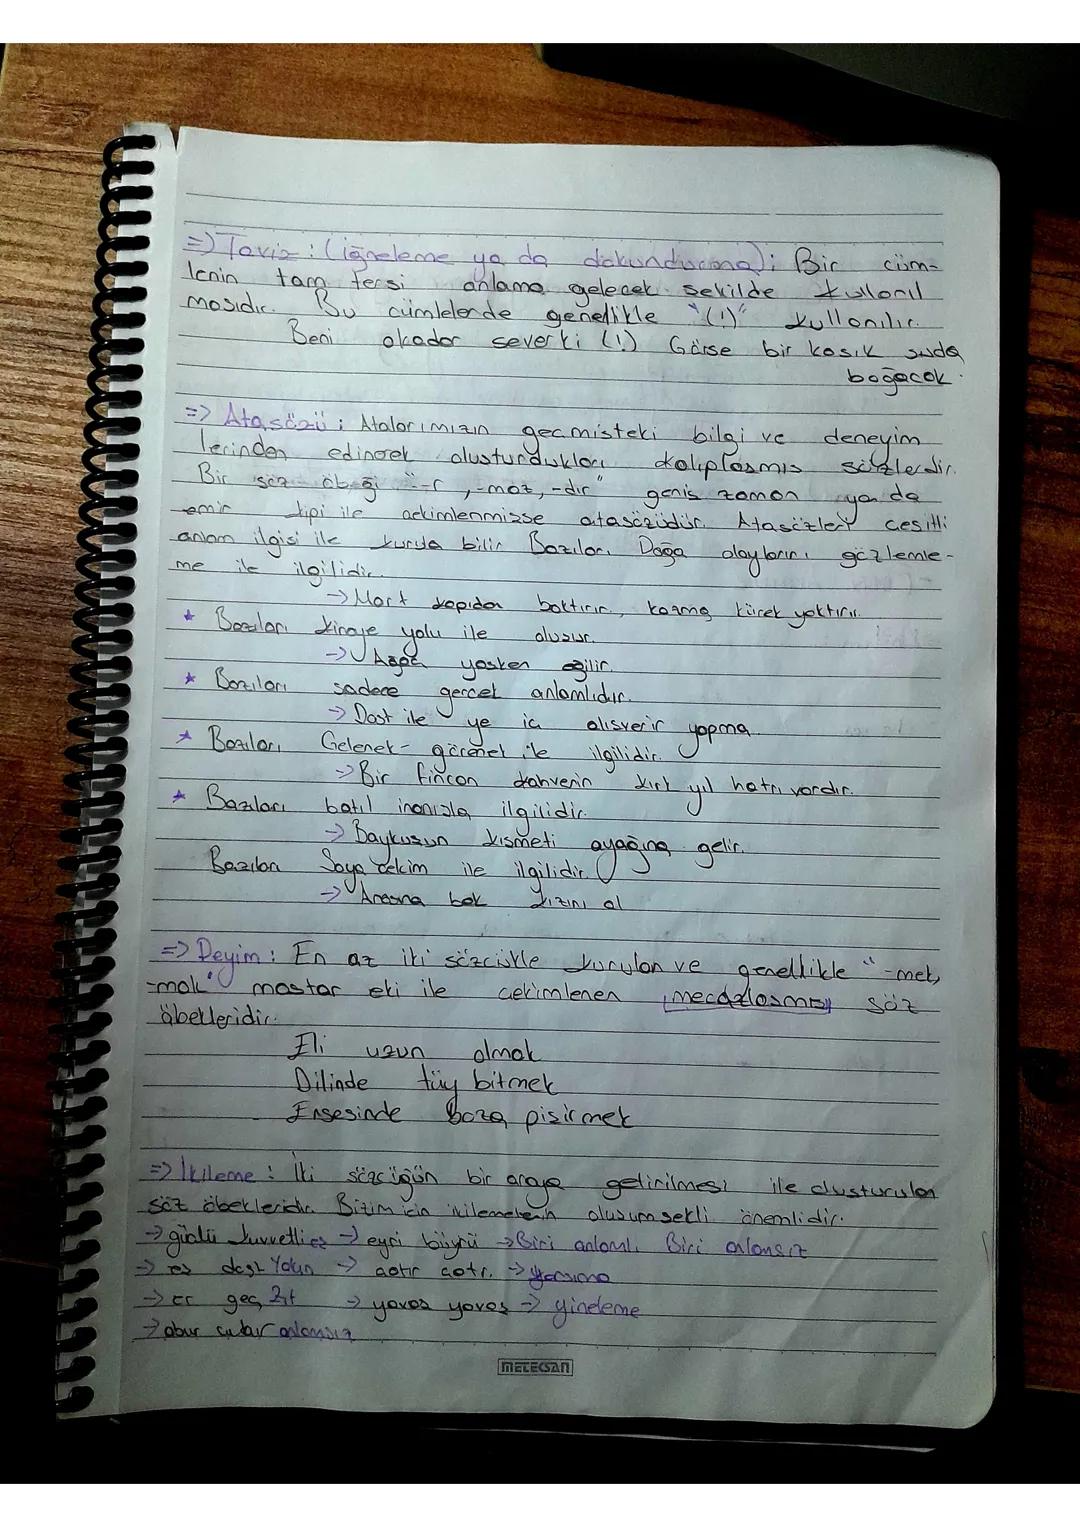 => Tariz : (iğneleme ya da dokundurma) ; Bir cüm-
lenin tam tersi anlama gelecek sekilde kullanıl
masıdır. Bu cümlelerde genellikle "(!)" kullanılır.
Beni okadar severki (!) Görse bir kasık suda
boğacak.
=> Atasözü : Atalarımızın gecmisteki bilgi ve deneyim
lerinden edinerek olusturdukları kalıplasmıs sözlerdir.
Bir söz öbeği "-r, -maz, -dır" genis zaman ya da
emir kipi ile cekimlenmisse atasözüdür. Atasözleri cesitli
anlam ilgisi ile kurula bilir. Bazıları Doğa olaylarını gözlemle-
me ile ilgilidir.
-> Mart kapıdan baktırır, kazma kürek yaktırır.
* Bazıları kinaye yolu ile olusur.
-> Ağac yasken eğilir.
* Bazıları sadece gercek anlamlıdır.
-> Dost ile ye ic alısverir yapma.
* Bazıları Gelenek-görenek ile ilgilidir.
-> Bir fincan kahvenin kırk yıl hatrı vardır.
* Bazıları batıl inanısla ilgilidir.
-> Baykusun kısmeti ayağına gelir.
Bazıları Soya cekim ile ilgilidir.
-> Anasına bak kızını al
=> Deyim : En az iki sözcükle kurulan ve genellikle "-mek,
-mak" mastar eki ile cekimlenen mecazlasmıs söz
öbekleridir.
Eli uzun olmak
Dilinde tüy bitmek
Ensesinde boza pisirmek
=> İkileme : İki sözcüğün bir araya getirilmesi ile olusturulan
söz öbekleridir. Bizim icin ikilemelerin olusum sekli önemlidir.
-> güclü kuvvetli es -> eğri büğrü -> Biri anlamlı Biri anlamsız
-> es dost Yakın -> catır catır ->
-> er gec Zıt -> yavas yavas -> yineleme
-> abur cubur anlamsız
METEKSAN